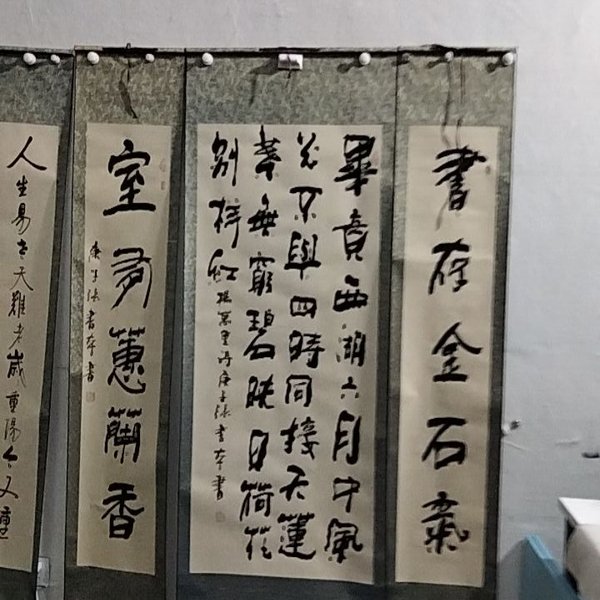 書存金石氣
畢竟西湖六月中風
光不與四時同接天蓮
葉無窮碧映日荷花
别樣紅
楊萬里詩庚子張書本書
室有蕙蘭香
庚子張書本書
人生易老天難老歲重陽今又重